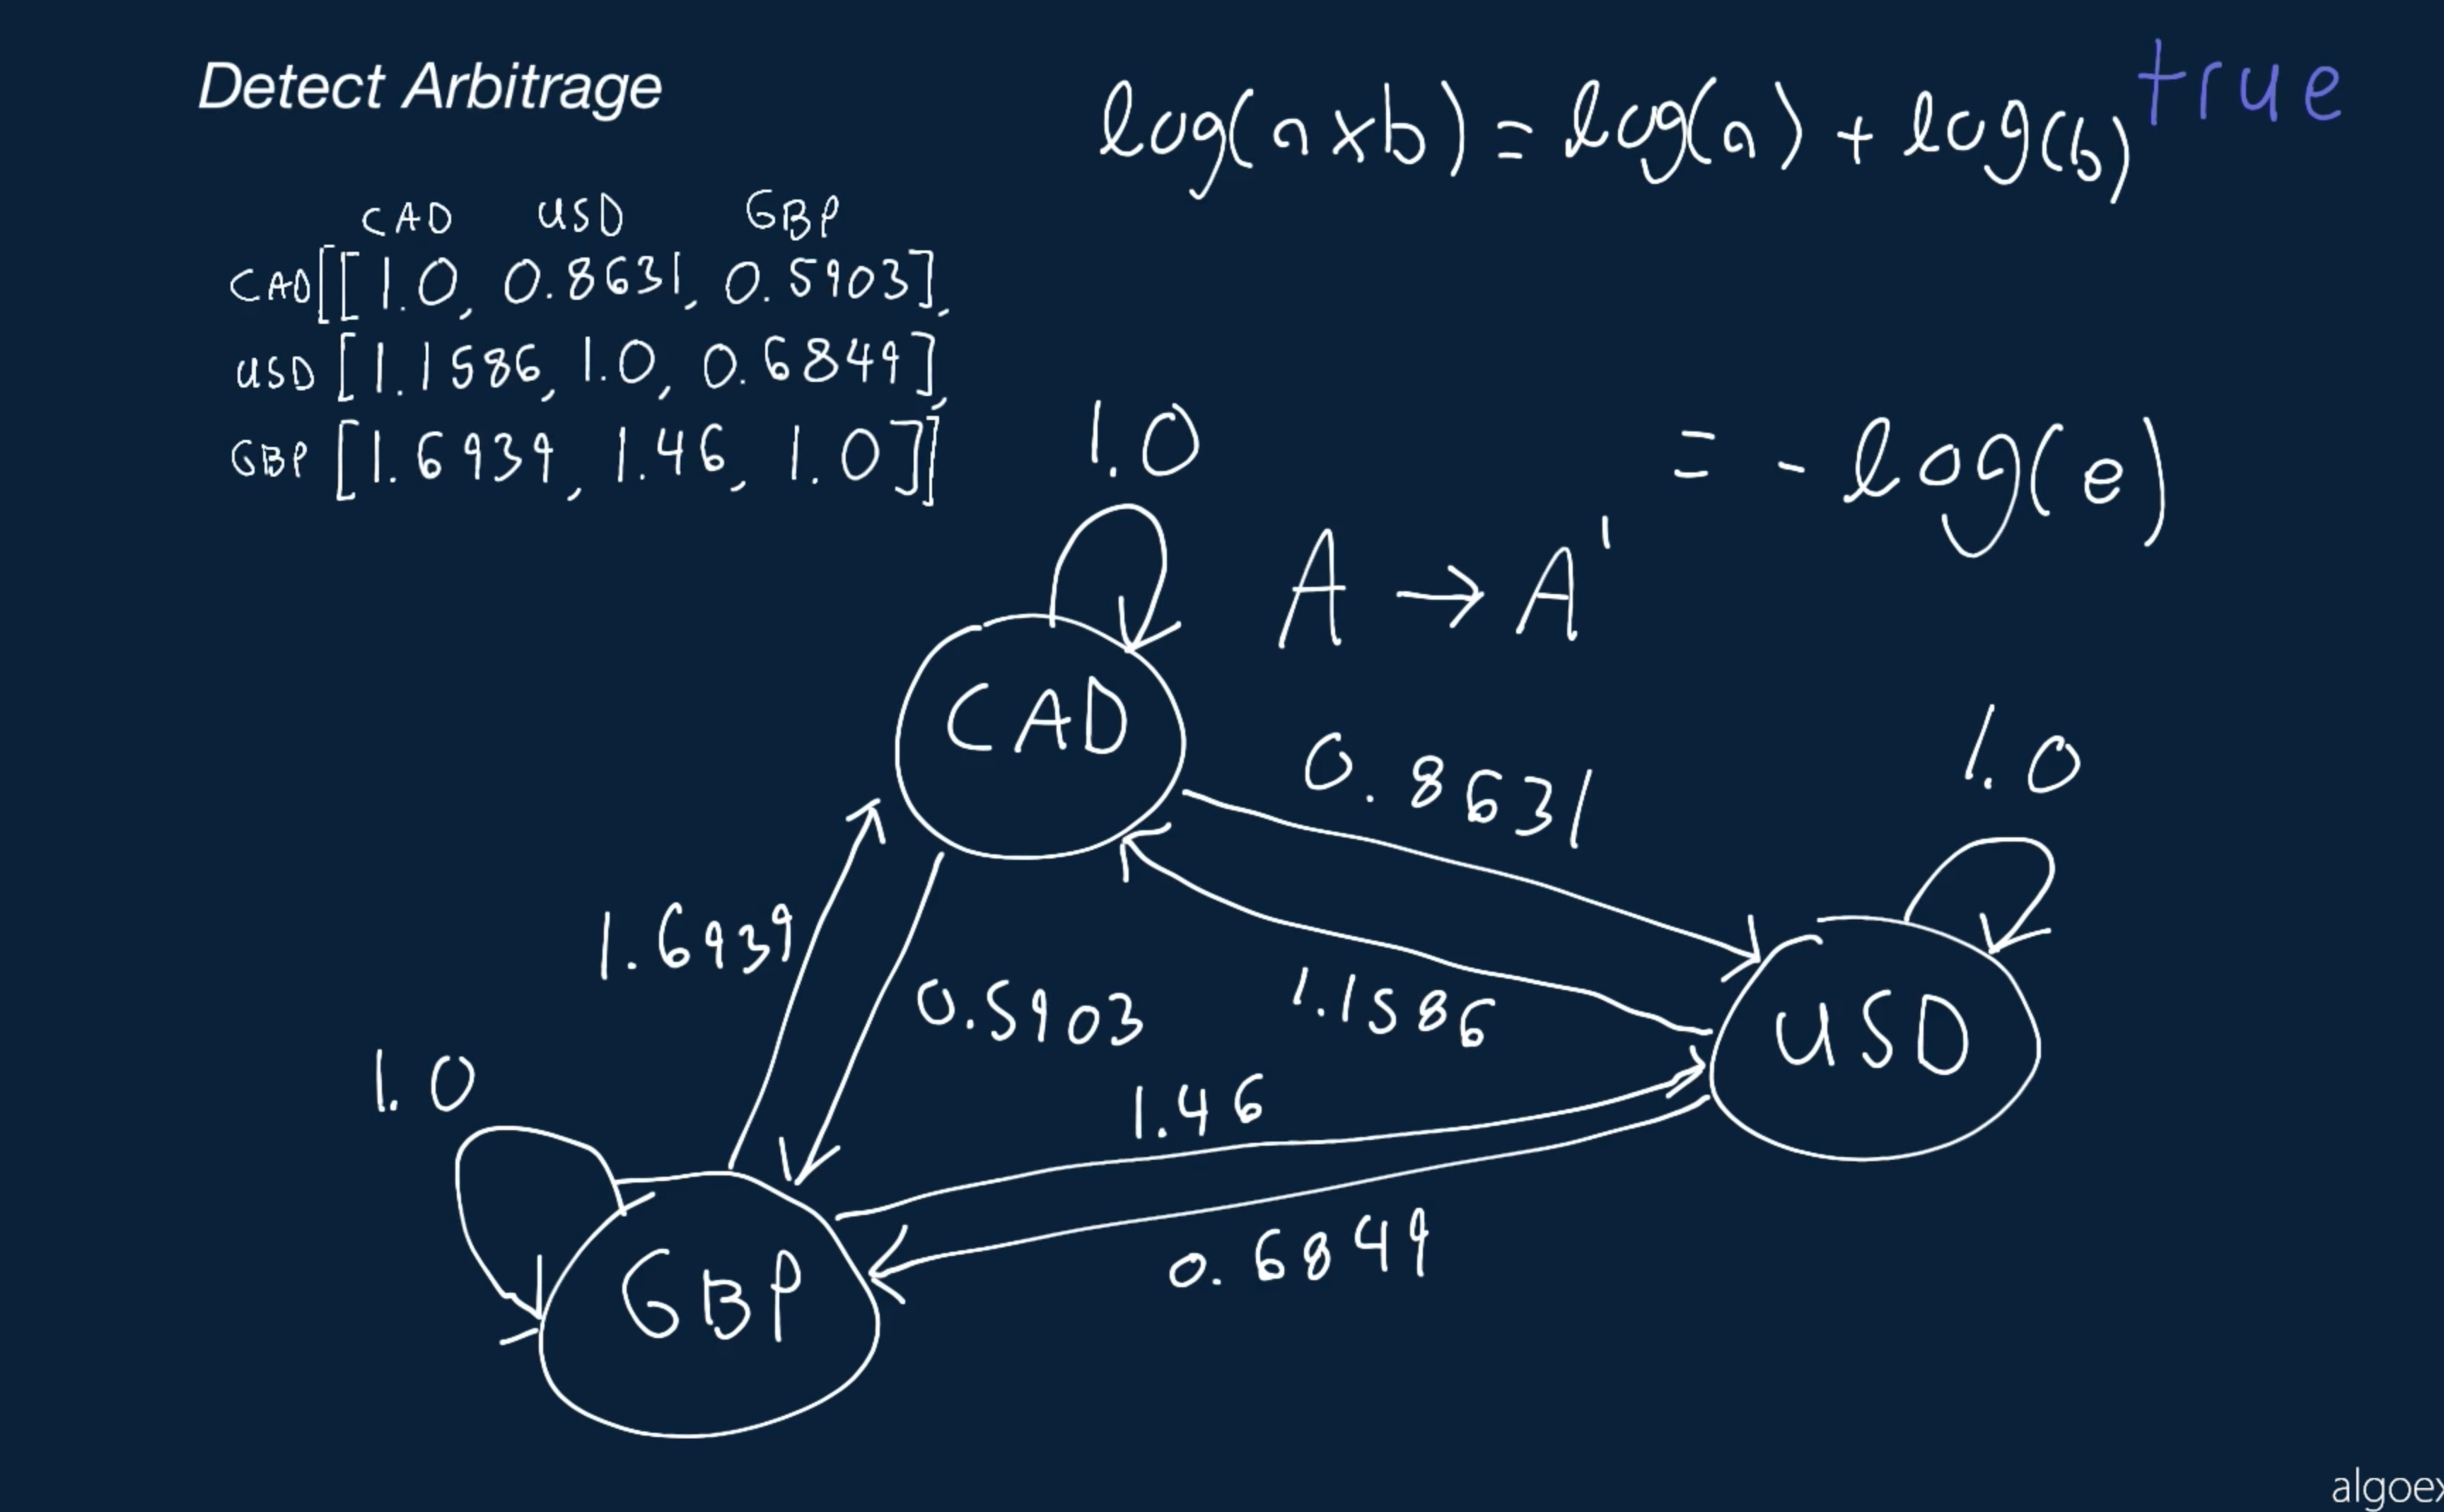 Detect Arbitrage
log(a x b) = log(a) + log(b)
true
CAD USD GBP
CAD [[1.0, 0.8631, 0.5903],
USD [1.1586, 1.0, 0.6849],
GBP [1.6939, 1.46, 1.0]]
1.0
= - log(e)
A → A'
CAD
0.8631
1.0
1.6939
0.5903
1.1586
USD
1.0
1.46
0.6849
GBP